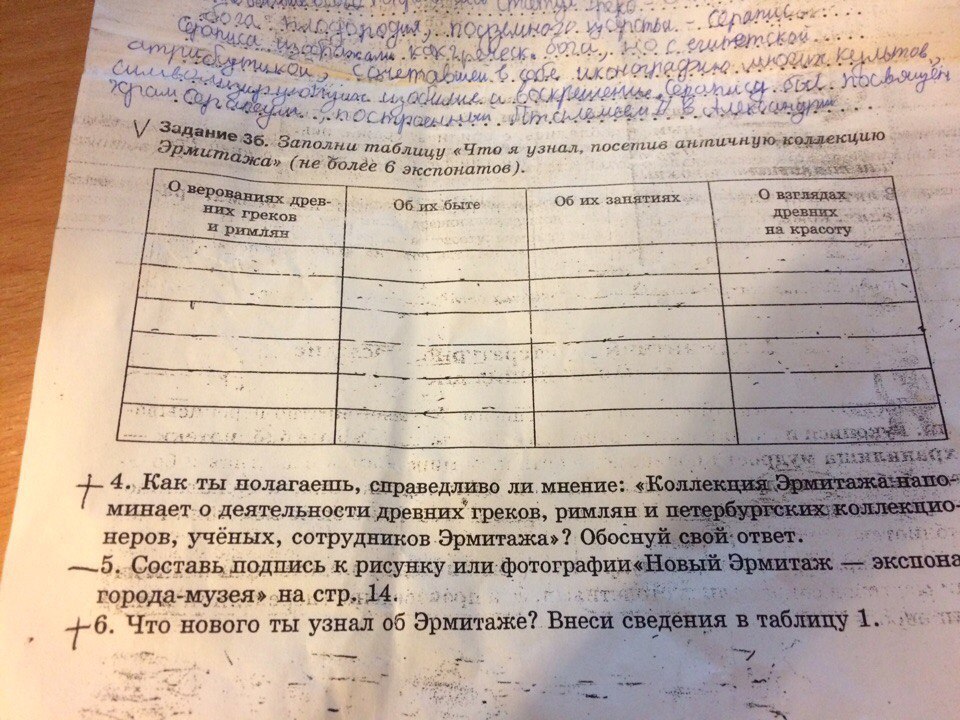 бога плодородия, подземного царства - Серапис.
Сераписа изображали как греческ. бога, но с египетской
атрибутикой, сочетавшей в себе иконографию многих культов,
символизирующих изобилие и воскрешение. Серапису был посвящён
храм Серапеум, построенный Птолемеем в Александрии
V Задание 3б. Заполни таблицу «Что я узнал, посетив античную коллекцию
Эрмитажа» (не более 6 экспонатов).
О верованиях древ-
них греков
и римлян
Об их быте
Об их занятиях
О взглядах
древних
на красоту
+ 4. Как ты полагаешь, справедливо ли мнение: «Коллекция Эрмитажа напо-
минает о деятельности древних греков, римлян и петербургских коллекцио-
неров, учёных, сотрудников Эрмитажа»? Обоснуй свой ответ.
— 5. Составь подпись к рисунку или фотографии «Новый Эрмитаж — экспона
города-музея» на стр. 14.
+ 6. Что нового ты узнал об Эрмитаже? Внеси сведения в таблицу 1.